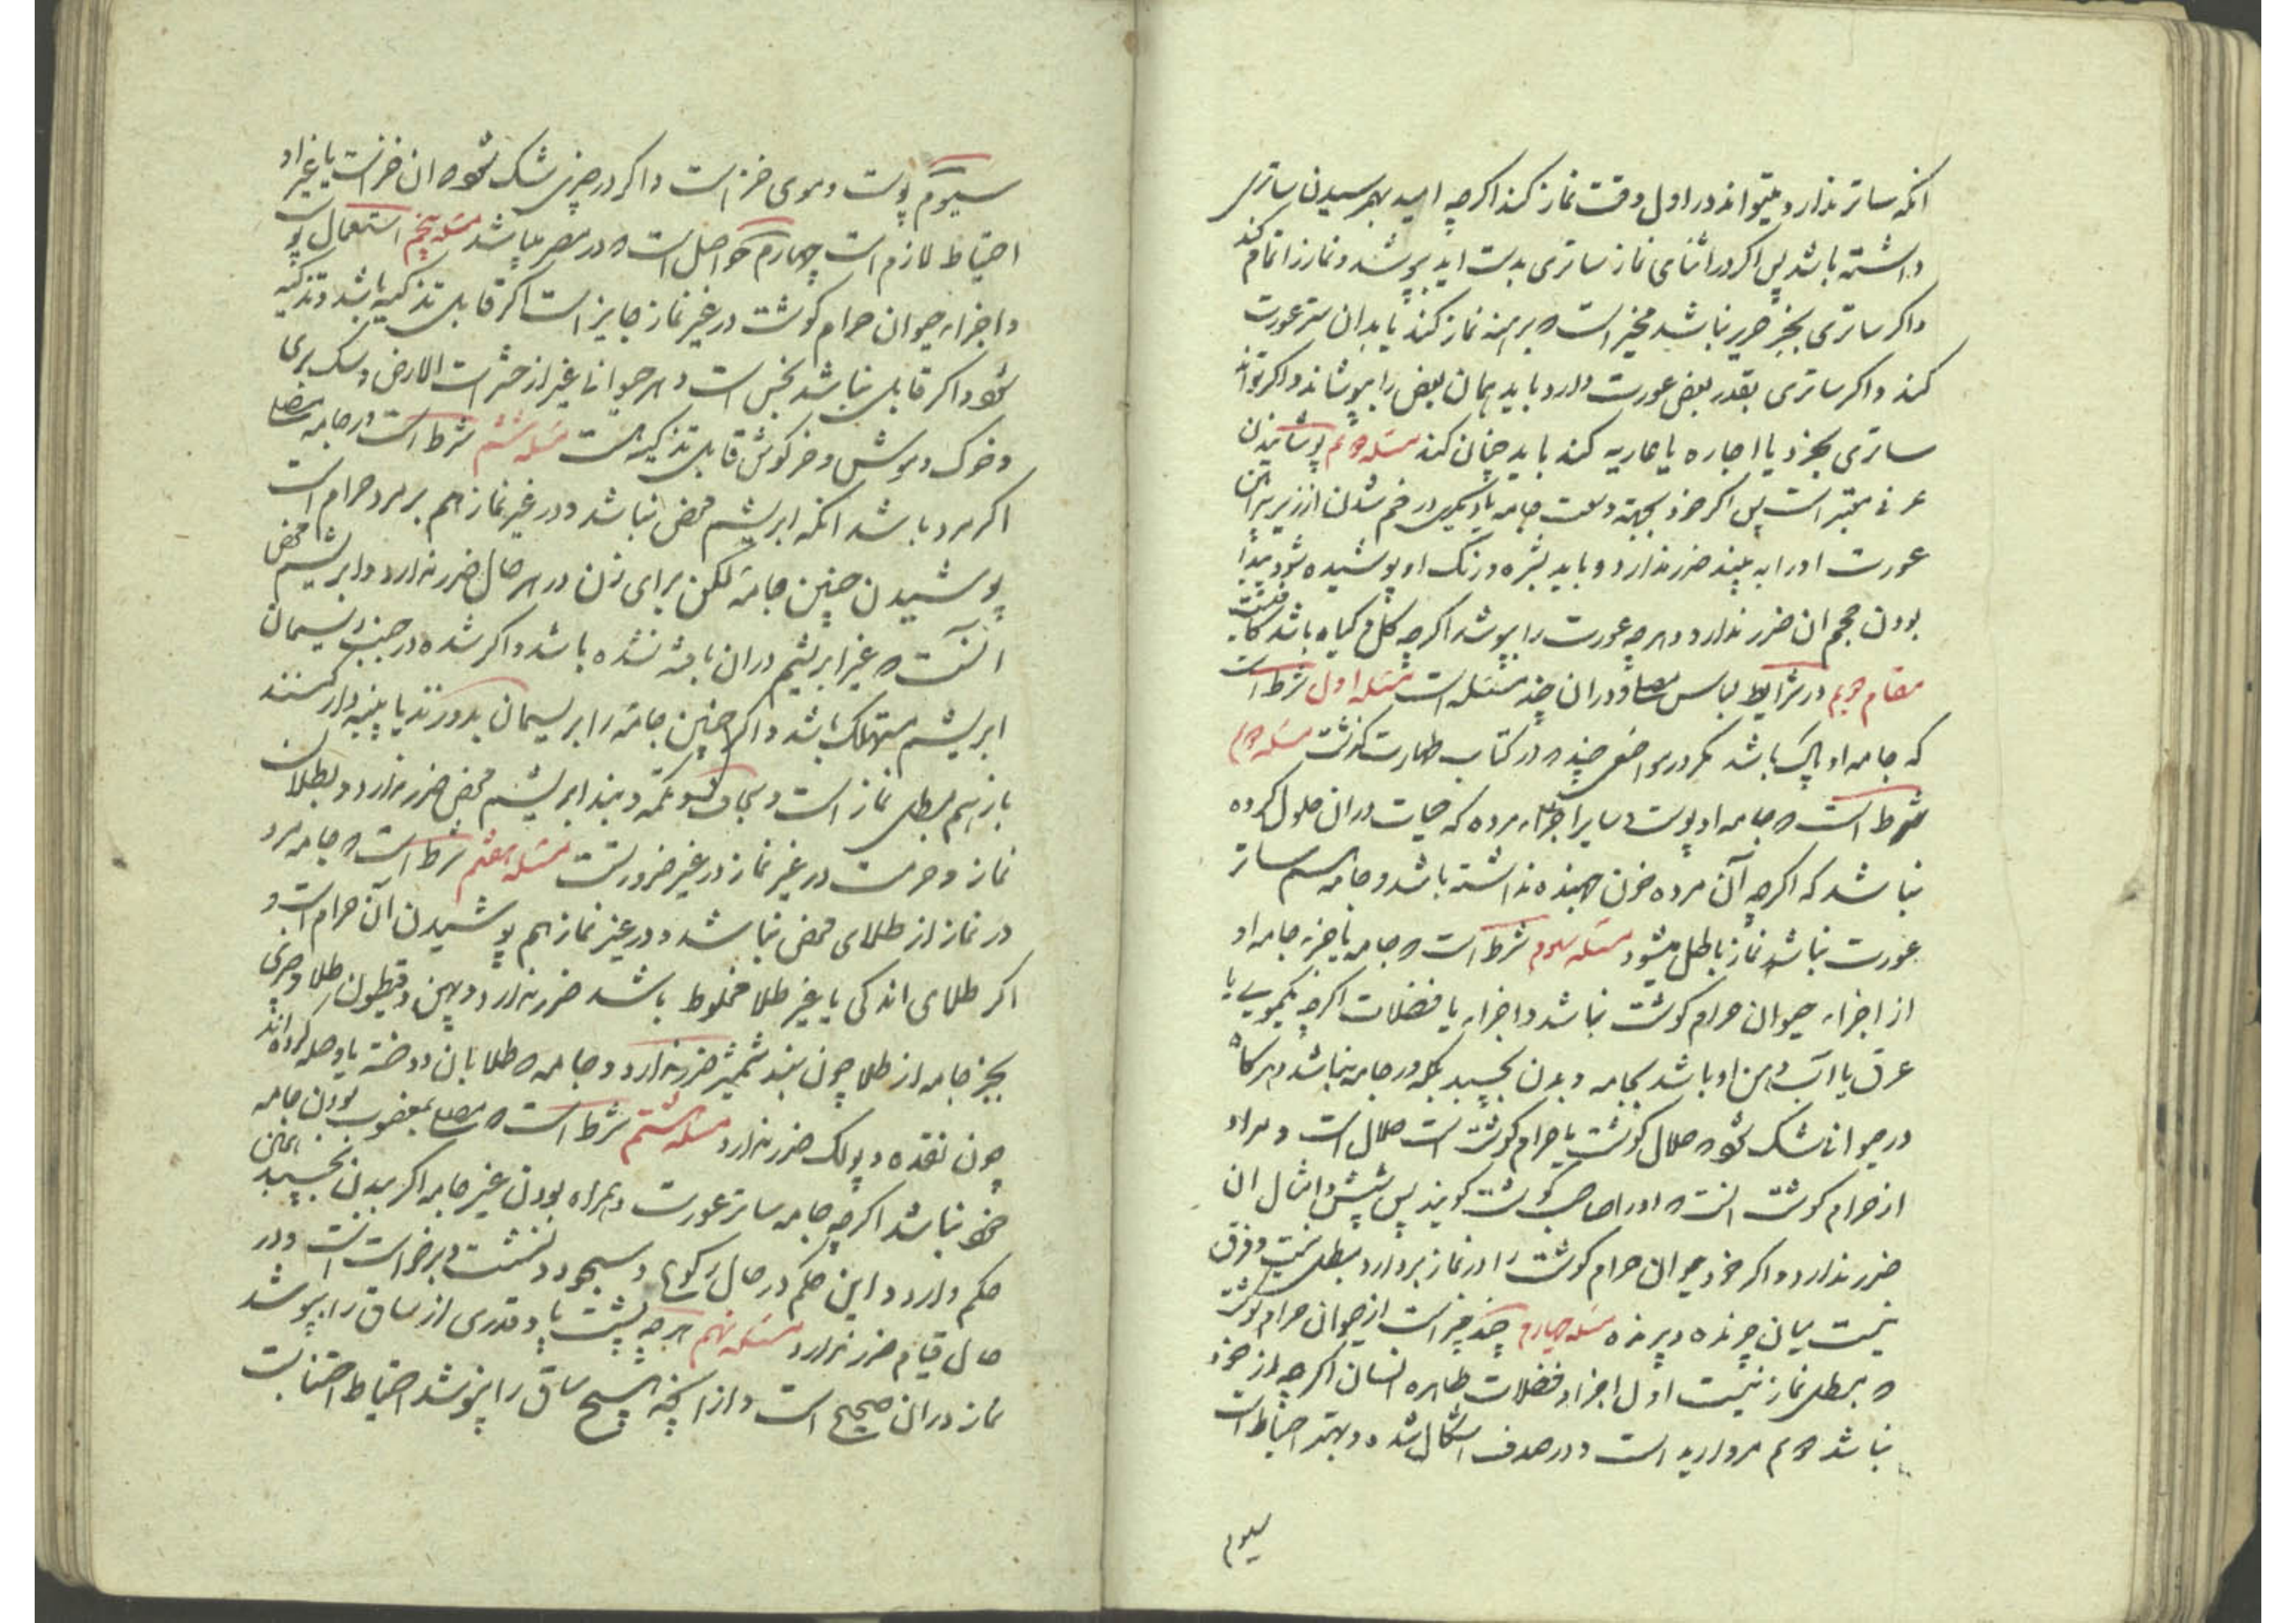 انکه ساتر ندارد میتواند در اول وقت نماز کند اکرچه امید بهمرسیدن ساتری
داشته باشد پس اکر در اثنای نماز ساتری بدست اید بپوشد و نماز را تمام کند
واکر ساتری بجز حریر نباشد مخیر است که برهنه نماز کند یا بدان ستر عورت
کند واکر ساتری بقدر بعض عورت دارد باید همان بعض را بپوشاند واکر تواند
ساتری بخرد یا اجاره یا عاریه کند باید چنان کند مسئله دویم پوشانیدن
عرفی معتبر است پس اکر خود بجهة وسعت جامه یا دیکری در خم شدن از زیر پیراهن
عورت او را به بیند ضرر ندارد و باید بشره و رنک او پوشیده شود پیدا
بودن حجم ان ضرر ندارد و هرچه عورت را بپوشد اکرچه کل و کیاه باشد کافیست
مقام دویم در شرایط لباس مصلی و در ان چند مسئله است مسئله اول شرط است
که جامه او پاک باشد مکر در مواضعی چند که در کتاب طهارت کذشت مسئله دویم
شرط است که جامه او پوست و سایر اجزاء مرده که حیات در ان حلول کرده
نباشد که اکرچه آن مرده خون جهنده نداشته باشد و جامه هم ساتر
عورت نباشد نماز باطل میشود مسئله سیوم شرط است که جامه یا جزء جامه او
از اجزاء حیوان حرام کوشت نباشد و اجزاء یا فضلات اکرچه یکمویی یا
عرق یا اب دهن او باشد بجامه و بدن نچسبد بلکه در جامه نباشد و هرکاه
در حیوانی شک شود که حلال کوشت یا حرام کوشت است حلال است و مراد
از حرام کوشت انست که او را صاحب کوشت کویند پس شپش و امثال ان
ضرر ندارد واکر خود حیوان حرام کوشت را در نماز بردارد مبطل نیست و فرق
نیست میان چرنده و پرنده مسئله چهارم چند چیز است از حیوان حرام کوشت
که مبطل نماز نیست اول اجزاء و فضلات طاهره انسان اکرچه از خود
نباشد دویم مروارید است و در صدف اشکال شده و بهتر احتیاط است
سیوم
سیوم پوست و موی خز است واکر در چیزی شک شود که ان خز است یا غیر او
احتیاط لازم است چهارم حواصل است که در مصر میباشد مسئله پنجم استعمال پوست
و اجزاء حیوان حرام کوشت در غیر نماز جایز است اکر قابل تذکیه باشد و تذکیه
شود واکر قابل نباشد نجس است و هر حیوانی غیر از حشرات الارض و سک بری
و خوک و موش و خرکوش قابل تذکیه است مسئله ششم شرط است در جامه مصلی
اکر مرد باشد انکه ابریشم محض نباشد و در غیر نماز هم بر مرد حرام است
پوشیدن چنین جامه لکن برای زن در هر حال ضرر ندارد و ابریشم محض
انست که غیر ابریشم در ان بافته نشده باشد واکر شده در جنب ریسمان
ابریشم مستهلک باشد واکر چنین جامه را بریسمان بدوزند یا پنبه دار کنند
باز هم مبطل نماز است و سجاف و تکمه و بند ابریشم محض ضرر ندارد و بطلان
نماز و حرمت در غیر نماز در غیر ضرورتست مسئله هفتم شرط است که جامه مرد
در نماز از طلای محض نباشد و در غیر نماز هم پوشیدن آن حرام است و
اکر طلای اندکی یا غیر طلا مخلوط باشد ضرر ندارد و همچنین و قیطون طلا و چیزی
بجز جامه از طلا چون بند شمشیر ضرر ندارد و جامه که طلا بان دوخته یا وصله کرده اند
چون نقده و پولک ضرر ندارد مسئله هشتم شرط است که مصلی بمغصوب بودن جامه
خود نباشد اکرچه جامه ساتر عورت و همراه بودن غیر جامه اکر ببدن بچسبد همین
حکم دارد و این حکم در حال رکوع و سجود و نشست و برخواست است و در
حال قیام ضرر ندارد مسئله نهم هرچه پشت پا و قدری از ساق را بپوشد
نماز در ان صحیح است و از انچه هیچ ساق را نپوشد احتیاط اجتنابست